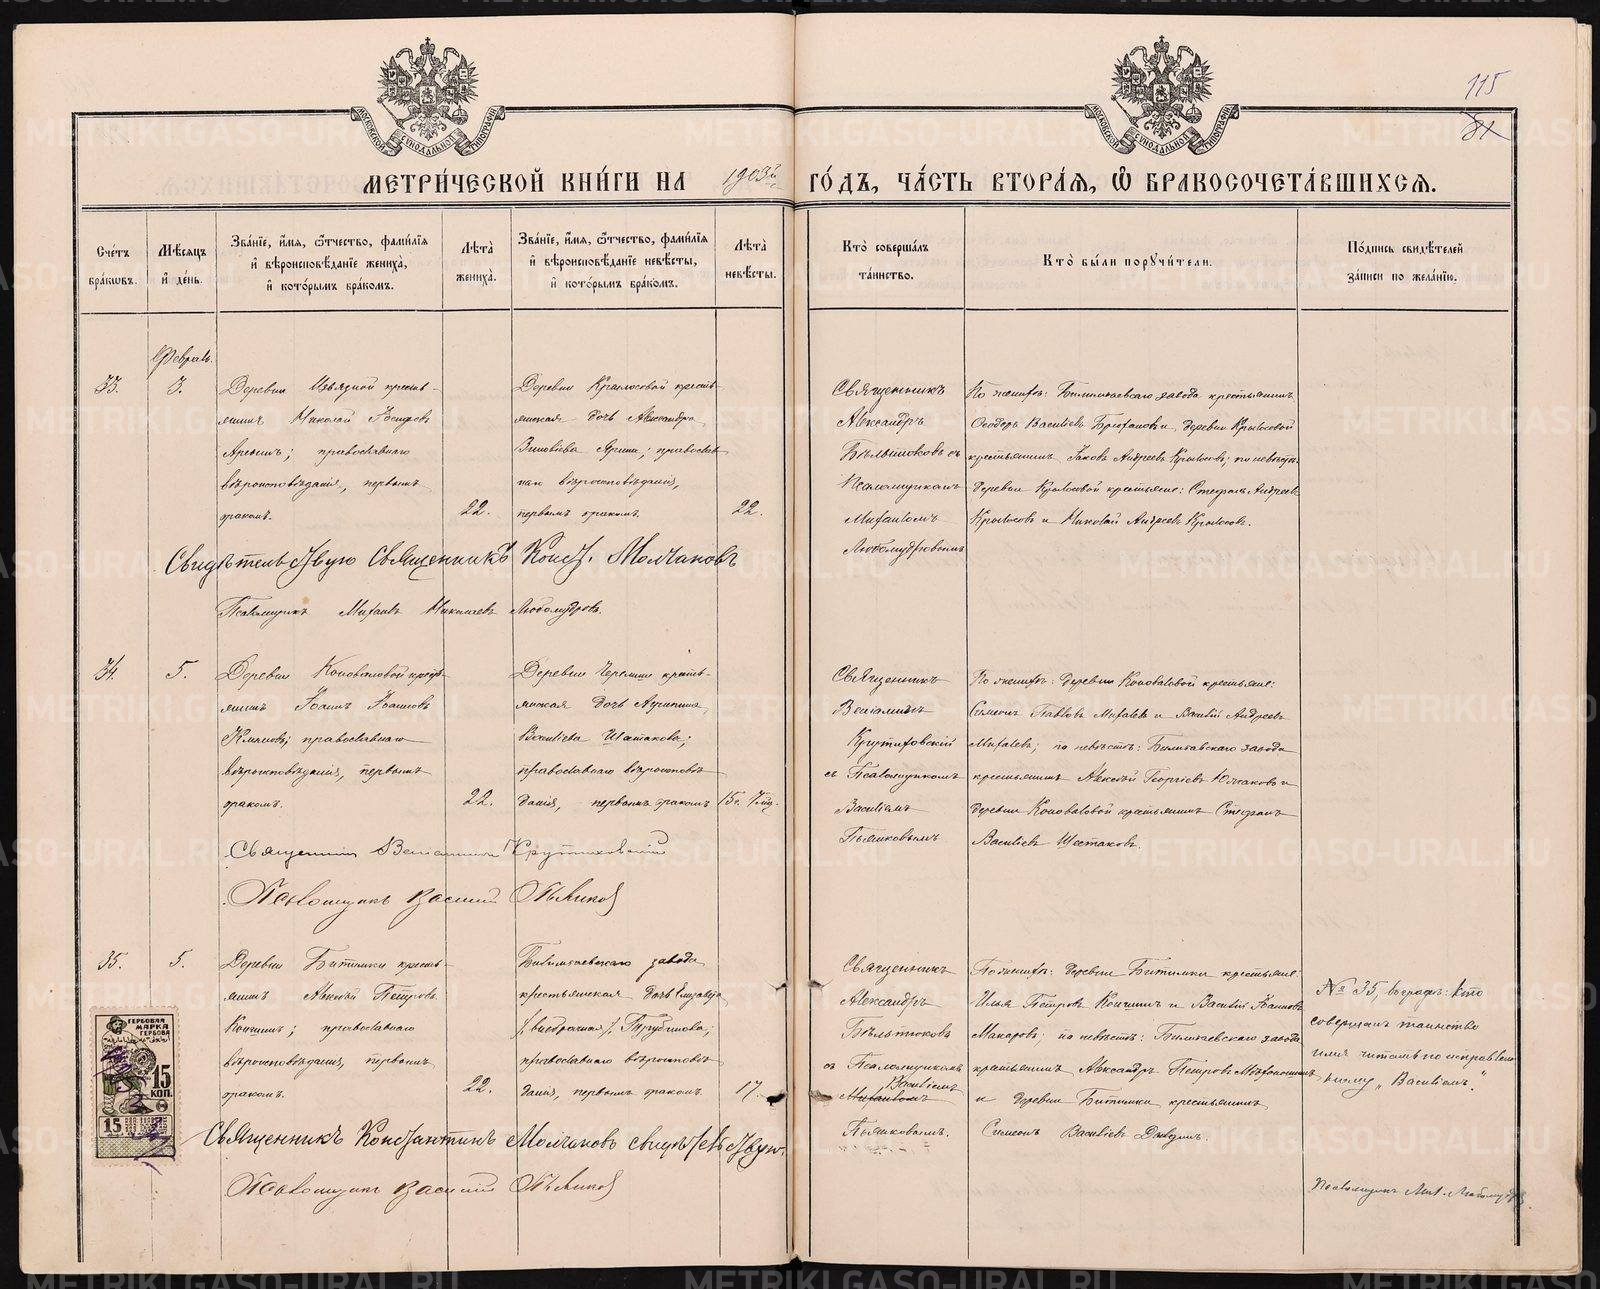 115
31
МОСКОВСКОЙ СѴНОДАЛЬНОЙ ТИПОГРАФІИ
МОСКОВСКОЙ СѴНОДАЛЬНОЙ ТИПОГРАФІИ
МЕТРИ́ЧЕСКОЙ КНИ́ГИ НА 1903й ГО́ДЪ, ЧА́СТЬ ВТОРА́Я, Ѿ БРАКОСОЧЕТА́ВШИХСЯ.
Сче́тъ бра́кѡвъ.
Мѣ́сѧцъ и҆ де́нь.
Зва́нїе, и҆́мѧ, ѻ҆́тчество, фами́лїѧ и҆ вѣроисповѣ́данїе жениха̀, и҆ кото́рымъ бра́комъ.
Лѣ́та жениха̀.
Зва́нїе, и҆́мѧ, ѻ҆́тчество, фами́лїѧ и҆ вѣроисповѣ́данїе невѣ́сты, и҆ кото́рымъ бра́комъ.
Лѣ́та невѣ́сты.
Кто̀ соверша́лъ та́инство.
Кто̀ бы́ли порꙋчи́тели.
По́дпись свидѣ́телей за́писи по жела́нїю.
Февраль.
33.
3.
Деревни Извязной кресть-
янинъ Николай Іосифовъ
; православнаго
вѣроисповѣданія, первымъ
бракомъ.
22.
Деревни Крылосовой кресть-
янская дочь Александра
Зиновіева ; православ
наго вѣроисповѣданія,
первымъ бракомъ.
22.
Священникъ
Александръ
Бѣльтюковъ съ
Псаломщикомъ
Михаиломъ
Любомудровымъ
По женихѣ: Билимбаевскаго завода крестьянинъ
Ѳеодоръ Васильевъ и деревни Крылосовой
крестьянинъ Іаковъ Андреевъ Крылосовъ; по невѣстѣ:
деревни Крылосовой крестьяне: Стефанъ Андреевъ
Крылосовъ и Николай Андреевъ Крылосовъ.
Свидѣтельствую Священникъ Конст. Молчановъ
Псаломщикъ Михаилъ Николаевъ Любомудровъ.
34.
5.
Деревни Коноваловой кресть-
янинъ Іоаннъ Іоанновъ
православнаго
вѣроисповѣданія, первымъ
бракомъ.
22.
Деревни Черемши кресть-
янская дочь Агрипина
Васильева Шестакова;
православнаго вѣроисповѣ
данія, первымъ бракомъ
15л. 7мц.
Священникъ
Веніаминъ
Крутиховскій
съ Псаломщикомъ
Василіемъ
Пьянковымъ
По женихѣ: деревни Коноваловой крестьяне:
Симеонъ Павловъ Михалевъ и Василій Андреевъ
Михалевъ; по невѣстѣ: Билимбаевскаго завода
крестьянинъ Алексѣй Георгіевъ Южаковъ и
деревни Коноваловой крестьянинъ Стефанъ
Васильевъ Шестаковъ.
Священникъ Веніаминъ Крутиховскій
Псаломщикъ Василій Пьянков
35.
5.
Деревни Битимки кресть-
янинъ Алексѣй Петровъ
Кончинъ; православнаго
вѣроисповѣданія, первымъ
бракомъ.
22.
Билимбаевскаго завода
крестьянская дочь Елизавета
/внебрачная/ Трубинова;
православнаго вѣроисповѣ
данія, первымъ бракомъ
17.
Священникъ
Александръ
Бѣльтюковъ
съ Псаломщикомъ
Василіемъ
Михаиломъ
Пьянковымъ.
По женихѣ: деревни Битимки крестьяне:
Илья Петровъ Кончинъ и Василій Іоанновъ
Макаровъ; по невѣстѣ: Билимбаевскаго завода
крестьянинъ Александръ Петровъ
и деревни Битимки крестьянинъ
Симеонъ Васильевъ
№ 35, въ графѣ: Кто
совершалъ таинство
имя читать по исправлен
ному „Василіемъ“.
Священникъ Константинъ Молчановъ свидѣтельствую.
Псаломщикъ Василій Пьянков
Псаломщикъ Мих. Любомудров
ГЕРБОВАЯ
МАРКА
15
КОП.
15
METRIKI.GASO-URAL.RU